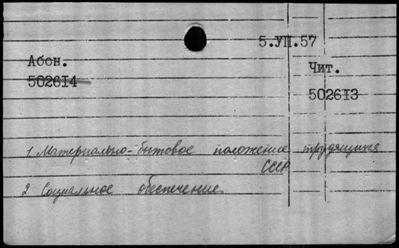 5.УП.57
Абон.
502614
Чит.
502613
1 Материально-бытовое положение трудящихся
СССР
2 Социальное обеспечение.